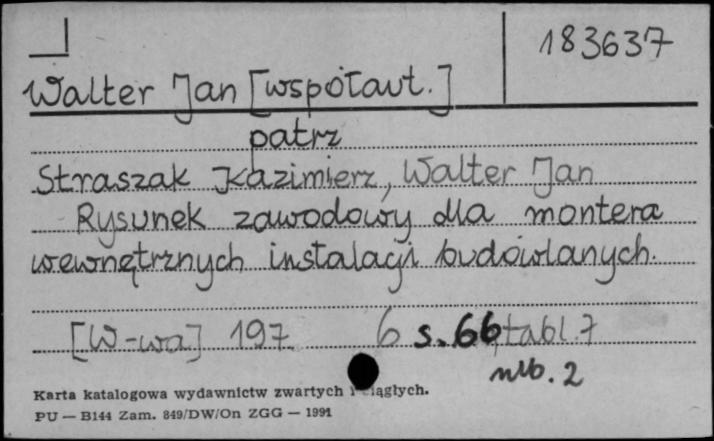 183637
Walter Jan [współaut.]
patrz
Straszak Kazimierz, Walter Jan
Rysunek zawodowy dla montera
wewnętrznych instalacji budowlanych.
[W-wa] 197 6 s. 66, tabl. 7
nlb. 2
Karta katalogowa wydawnictw zwartych i ciągłych.
PU — B144 Zam. 849/DW/On ZGG — 1991